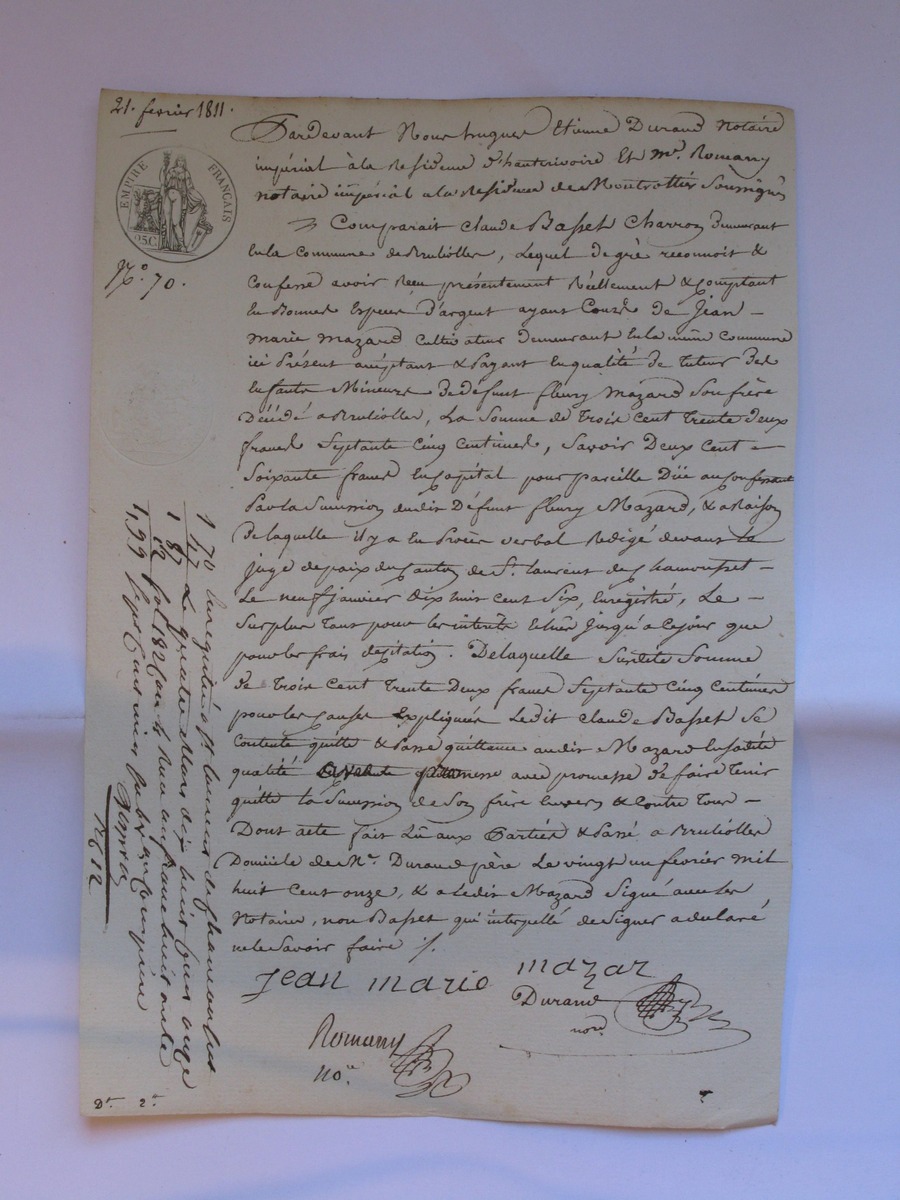 21. fevrier 1811.
EMPIRE FRANÇAIS
25C
N.º 70.
Pardevant Nous hugues Etienne Durand Notaire
impérial à la Residence d'hauterivoire Et Mr. Romany
notaire impérial a la Residence de Montrottier Soussignés
Comparait Claude Basset Charron demeurant
en la Commune de Brullioller, Lequel de gré reconnoit &
Confesse avoir Reçu présentement Réellement & Comptant
En Bonnes Especes d'argent ayant Cours de Jean
marie Mazard Cultivateur demeurant en la même Commune
ici Présent acceptant & Payant En qualité de tuteur des
Enfants Mineurs de défunt fleury Mazard Son frère
Décédé a Brullioller, La Somme de Trois Cent Trente deux
francs Septante Cinq Centimes, Savoir Deux Cent
Soixante francs En Capital pour pareille Düe au Confessant
Par la Succession dudit Défunt fleury Mazard, & a Raison
De laquelle il y a Eu Procès verbal Redigé devant Le
juge de paix du Canton de St. Laurent de Chamousset
Le neuf janvier dix huit Cent Six, Enregistré, Le
Surplus Tant pour les interêts Echus Jusqu'a Ce jour que
pour les frais de Citation. De laquelle Susdite Somme
de Trois Cent Trente Deux francs Septante Cinq Centimes
pour les Causes Expliquées Ledit Claude Basset Se
Contente quitte & Passe quittance audit Mazard En sadite
qualité avec promesse de faire Tenir
quitte la Succession de Son frère Envers & Contre Tous
Dont acte fait Lû aux Parties & Passé a Brullioller
Domicile de Mr. Durand père Le vingt un fevrier Mil
huit Cent onze, & a Ledit Mazard Signé avec les
Notaires, non Basset qui interpellé de Signer a declaré
ne le Savoir faire ./.
Jean marie mazar
Durand
nore.
Romany
no.e
1 70 Enregistré a St. Laurent de Chamousset
1 47 Le quatre Mars dix huit Cent onze
87 fol 182
1,99
Dt. 2e.